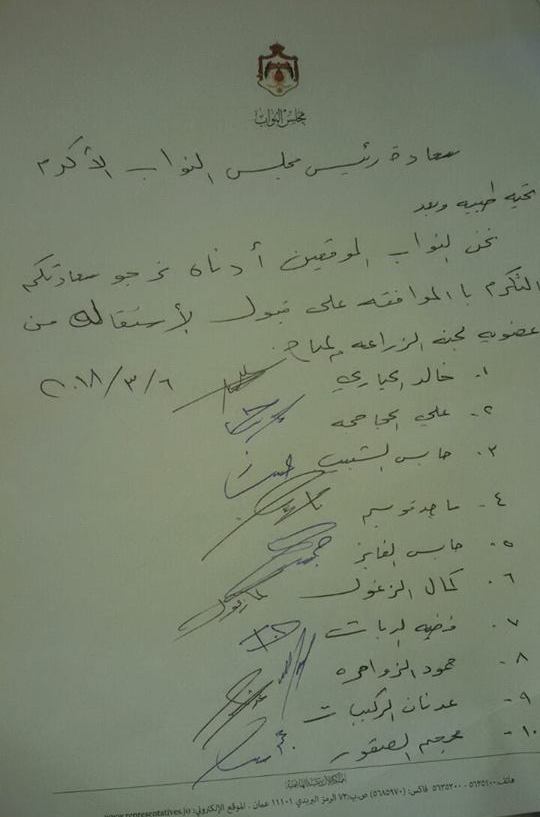 مجلس النواب
سعادة رئيس مجلس النواب الأكرم
تحيه طيبه وبعد
نحن النواب الموقعين أدناه نرجو سعادتكم
التكرم با الموافقه على قبول لأستقاله من
عضويه لجنه الزراعه والمياه.
١. خالد الحياري ٢٠١٨/٣/٦
٢. علي الحجاحجه
٣. حابس الشبيب
٤. ماجد قويسم
٥. حابس الفايز
٦. كمال الزغول
٧. فضيه الديات
٨. حمود الزواهره
٩. عدنان الركيبات
١٠. محجم الصقور
المملكة الأردنية الهاشمية
هاتف: ٥٦٣٥١٠٠ - ٥٦٣٥٢٠٠ فاكس: (٥٦٨٥٩٧٠) ص.ب: ٧٢ الرمز البريدي ١١١٠١ عمان . الموقع الإلكتروني: www.representatives.jo